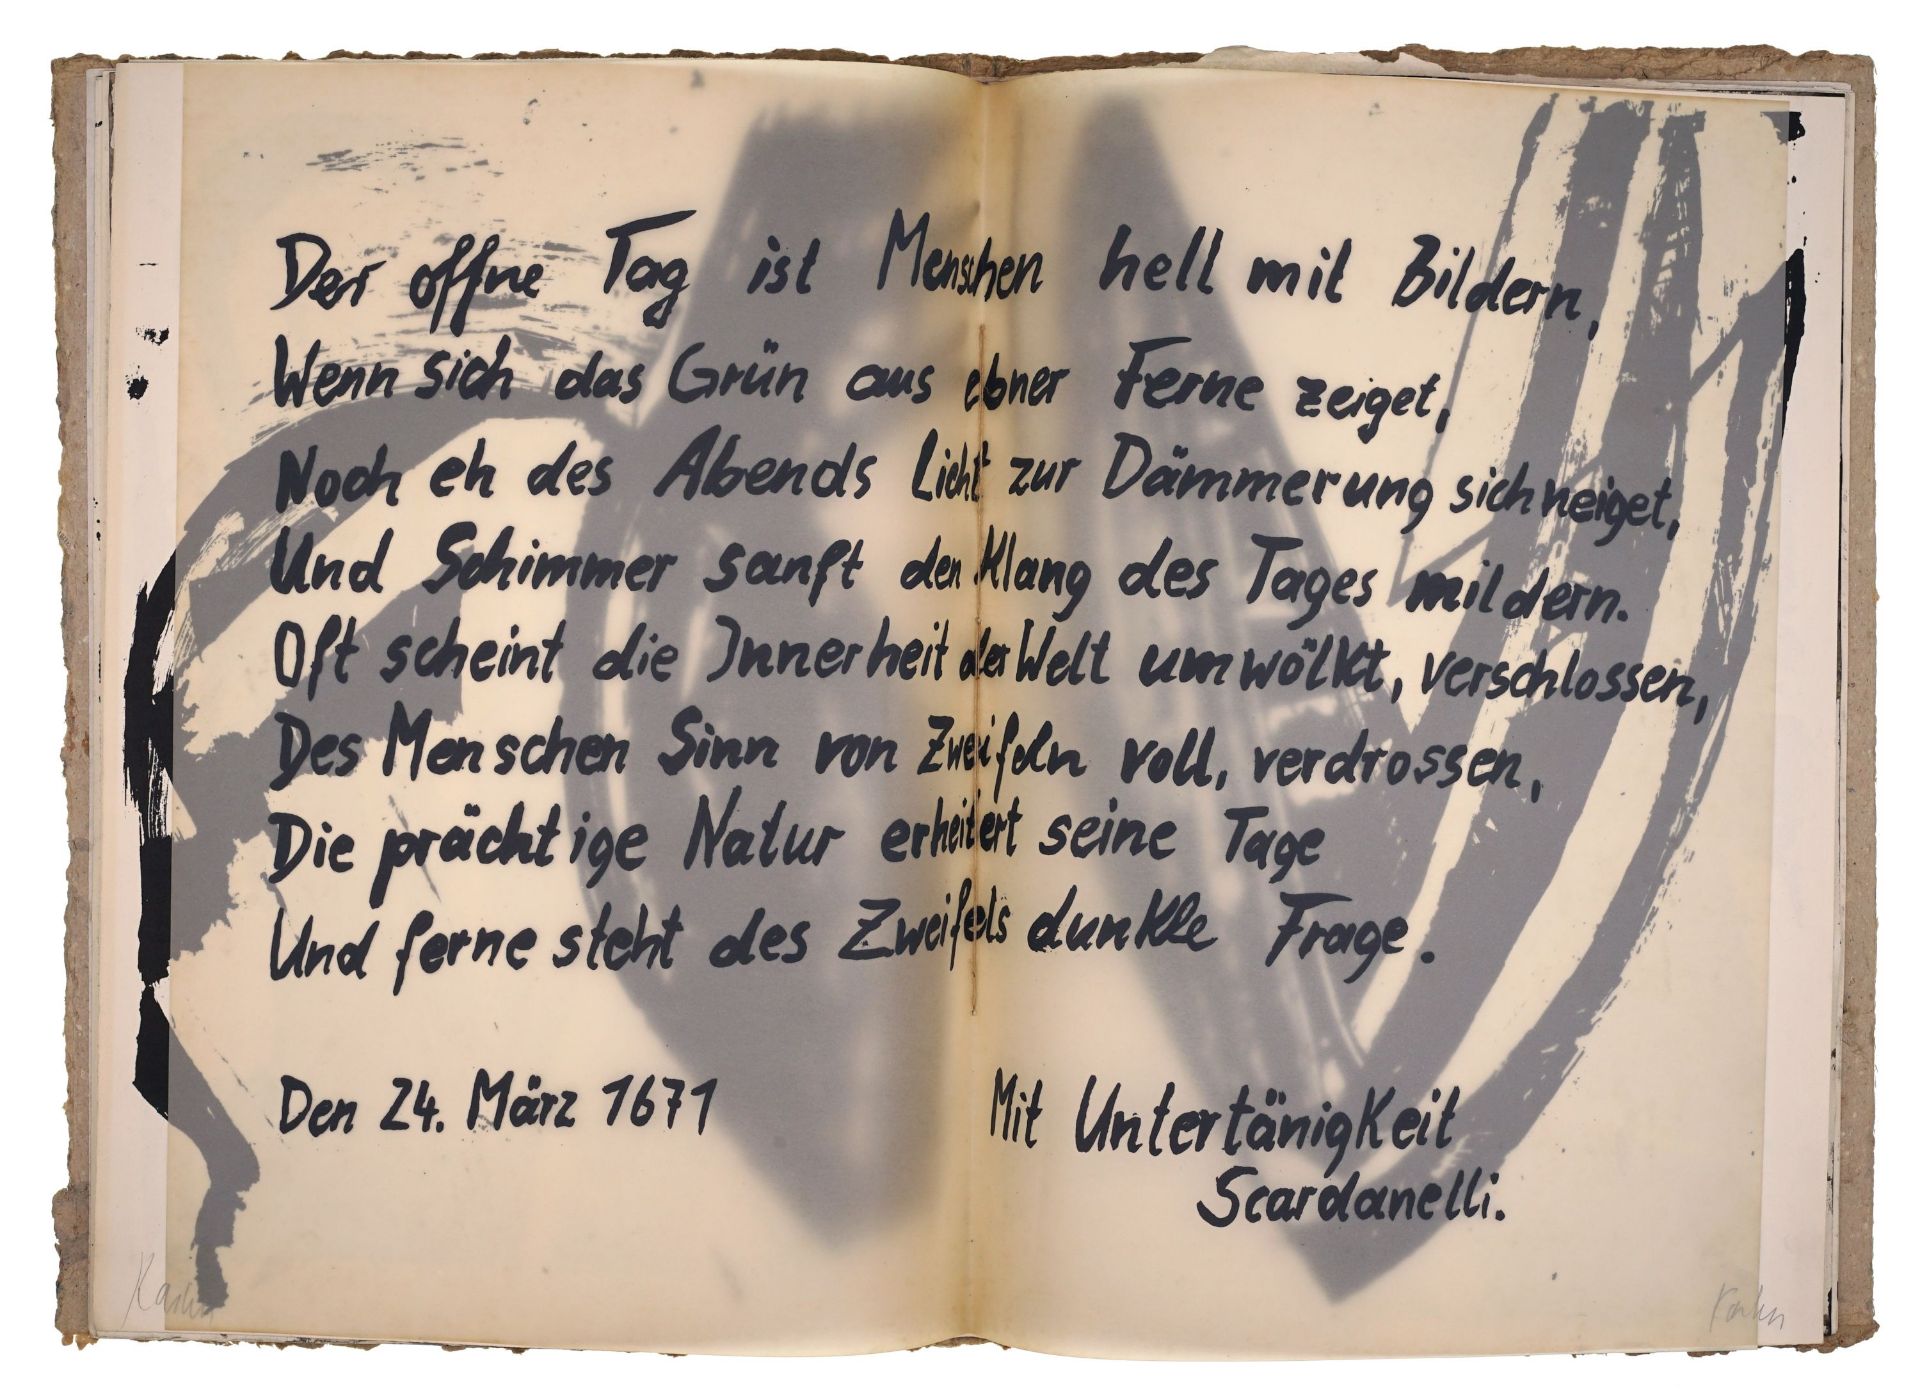 Der offne Tag ist Menschen hell mit Bildern,
Wenn sich das Grün aus ebner Ferne zeiget,
Noch eh des Abends Licht zur Dämmerung sich neiget,
Und Schimmer sanft den Klang des Tages mildern.
Oft scheint die Innerheit der Welt umwölkt, verschlossen,
Des Menschen Sinn von Zweifeln voll, verdrossen,
Die prächtige Natur erheitert seine Tage
Und ferne steht des Zweifels dunkle Frage.
Den 24. März 1671
Mit Untertänigkeit
Scardanelli.